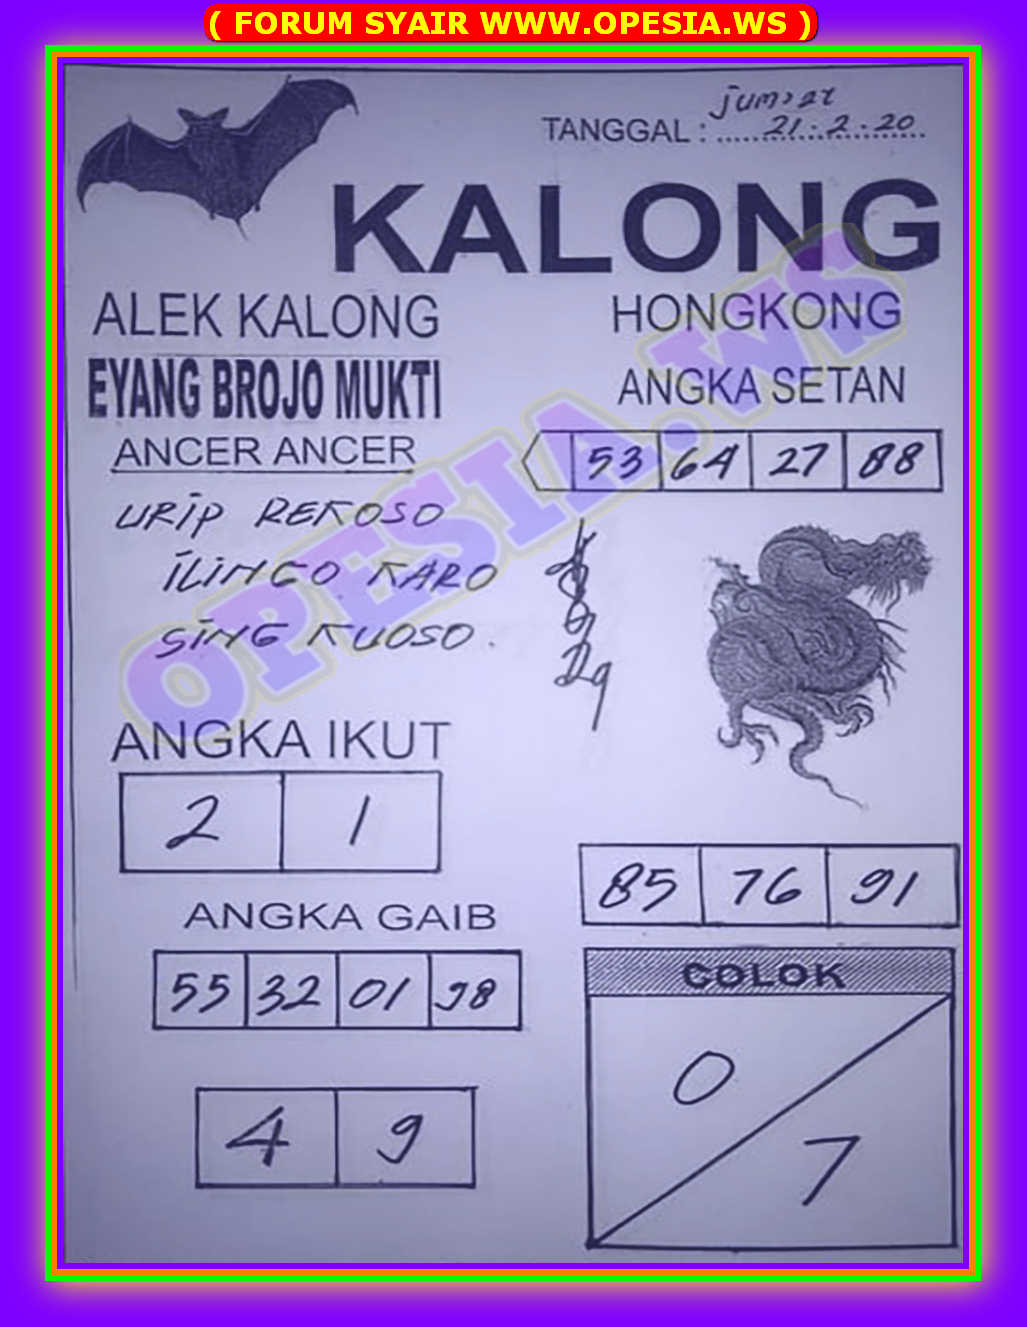 ( FORUM SYAIR WWW.OPESIA.WS )
jumat
TANGGAL : 21 - 2 - 20
KALONG
ALEK KALONG
HONGKONG
EYANG BROJO MUKTI
ANGKA SETAN
ANCER ANCER
53 64 27 88
URIP REKOSO
ILINGO KARO
SING KUOSO.
OPESIA.WS
ANGKA IKUT
2 1
85 76 91
ANGKA GAIB
55 32 01 98
COLOK
0
7
4 9